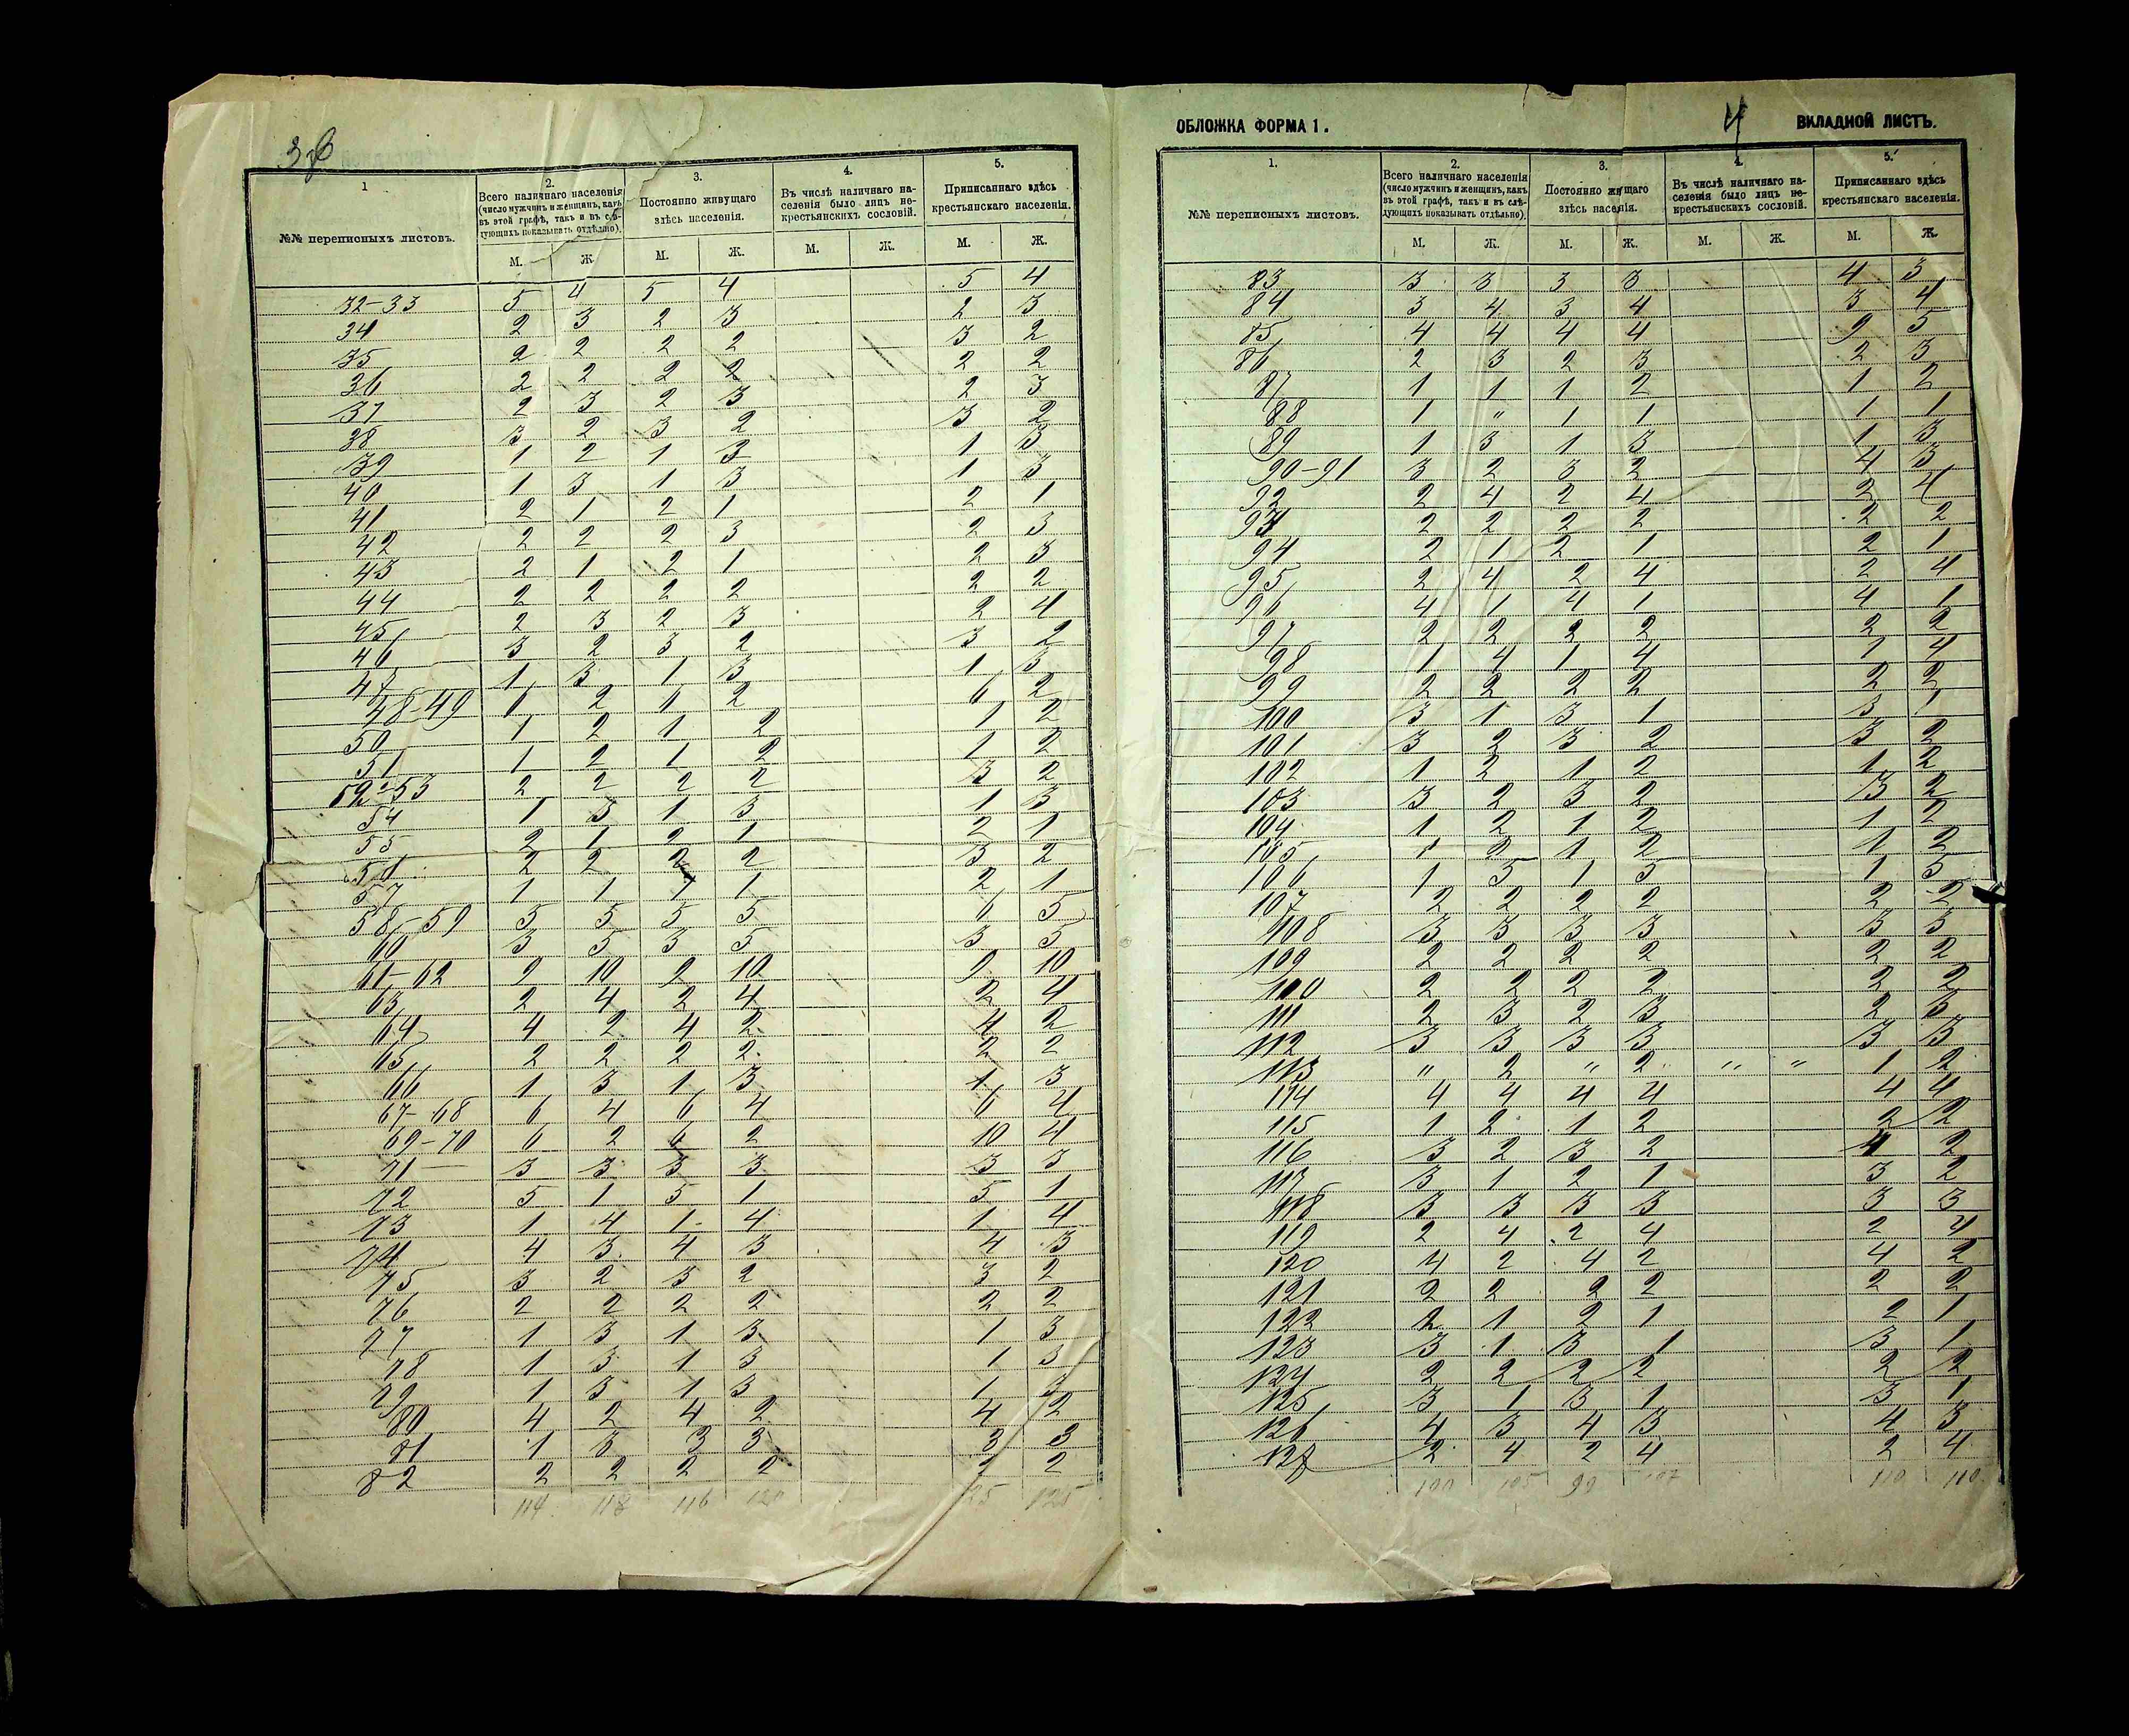 3 об
1 2. 3. 4. 5.
№№ переписныхъ листовъ. Всего наличнаго населенія (число мужчинъ и женщинъ, какъ въ этой графѣ, такъ и въ слѣдующихъ показывать отдѣльно). Постоянно живущаго здѣсь населенія. Въ числѣ наличнаго населенія было лицъ некрестьянскихъ сословій. Приписаннаго здѣсь крестьянскаго населенія.
М. Ж. М. Ж. М. Ж. М. Ж.
32-33 5 4 5 4 5 4
34 2 3 2 3 2 3
35 2 2 2 2 3 2
36 2 2 2 2 2 2
37 2 3 2 3 2 3
38 3 2 3 2 3 2
39 1 2 1 3 1 3
40 1 3 1 3 1 3
41 2 1 2 1 2 1
42 2 2 2 3 2 3
43 2 1 2 1 2 3
44 2 2 2 2 2 2
45 2 3 2 3 2 4
46 3 2 3 2 3 2
47 1 3 1 3 1 3
48-49 6 2 6 2 6 2
50 1 2 1 2 1 2
51 1 2 1 2 1 2
52-53 2 2 2 2 3 2
54 1 3 1 3 1 3
55 2 1 2 1 2 1
56 2 2 2 2 3 2
57 1 1 1 1 2 1
58-59 5 5 5 5 6 5
60 3 5 3 5 3 5
61-62 9 10 9 10 9 10
63 2 4 2 4 2 4
64 4 2 4 2 4 2
65 2 2 2 2 2 2
66 1 3 1 3 1 3
67-68 6 4 6 4 6 4
69-70 6 2 6 2 10 4
71 3 3 3 3 3 3
72 5 1 5 1 5 1
73 1 4 1 4 1 4
74 4 3 4 3 4 3
75 3 2 3 2 3 2
76 2 2 2 2 2 2
77 1 3 1 3 1 3
78 1 3 1 3 1 3
79 1 3 1 3 1 3
80 4 2 4 2 4 2
81 1 3 3 3 3 3
82 2 2 2 2 2 2
114 118 116 120 125 125
ОБЛОЖКА ФОРМА 1. 4 ВКЛАДНОЙ ЛИСТЪ.
1. 2. 3. 4. 5.
№№ переписныхъ листовъ. Всего наличнаго населенія (число мужчинъ и женщинъ, какъ въ этой графѣ, такъ и въ слѣдующихъ показывать отдѣльно). Постоянно живущаго здѣсь населенія. Въ числѣ наличнаго населенія было лицъ некрестьянскихъ сословій. Приписаннаго здѣсь крестьянскаго населенія.
М. Ж. М. Ж. М. Ж. М. Ж.
83 3 3 3 3 4 3
84 3 4 3 4 3 4
85 4 4 4 4 9 5
86 2 3 2 3 2 3
87 1 1 1 2 1 2
88 1 " 1 1 1 1
89 1 3 1 3 1 3
90-91 3 2 3 2 4 3
92 2 4 2 4 2 4
93 2 2 2 2 2 2
94 2 1 2 1 2 1
95 2 4 2 4 2 4
96 4 1 4 1 4 1
97 2 2 2 2 2 2
98 1 4 1 4 1 4
99 2 2 2 2 2 2
100 3 1 3 1 3 1
101 3 2 3 2 3 2
102 1 2 1 2 1 2
103 3 2 3 2 3 2
104 1 2 1 2 1 2
105 1 2 1 2 1 2
106 1 5 1 5 1 5
107 2 2 2 2 2 2
108 3 3 3 3 3 3
109 2 2 2 2 2 2
110 2 2 2 2 2 2
111 2 3 2 3 2 3
112 3 3 3 3 3 3
113 " 2 " 2 " " 1 2
114 4 4 4 4 4 4
115 1 2 1 2 2 2
116 3 2 3 2 4 2
117 3 1 2 1 3 2
118 3 3 3 3 3 3
119 2 4 2 4 2 4
120 4 2 4 2 4 2
121 2 2 2 2 2 2
122 2 1 2 1 2 1
123 3 1 3 1 3 1
124 2 2 2 2 2 2
125 3 1 3 1 3 1
126 4 3 4 3 4 3
127 2 4 2 4 2 4
100 105 99 107 110 110